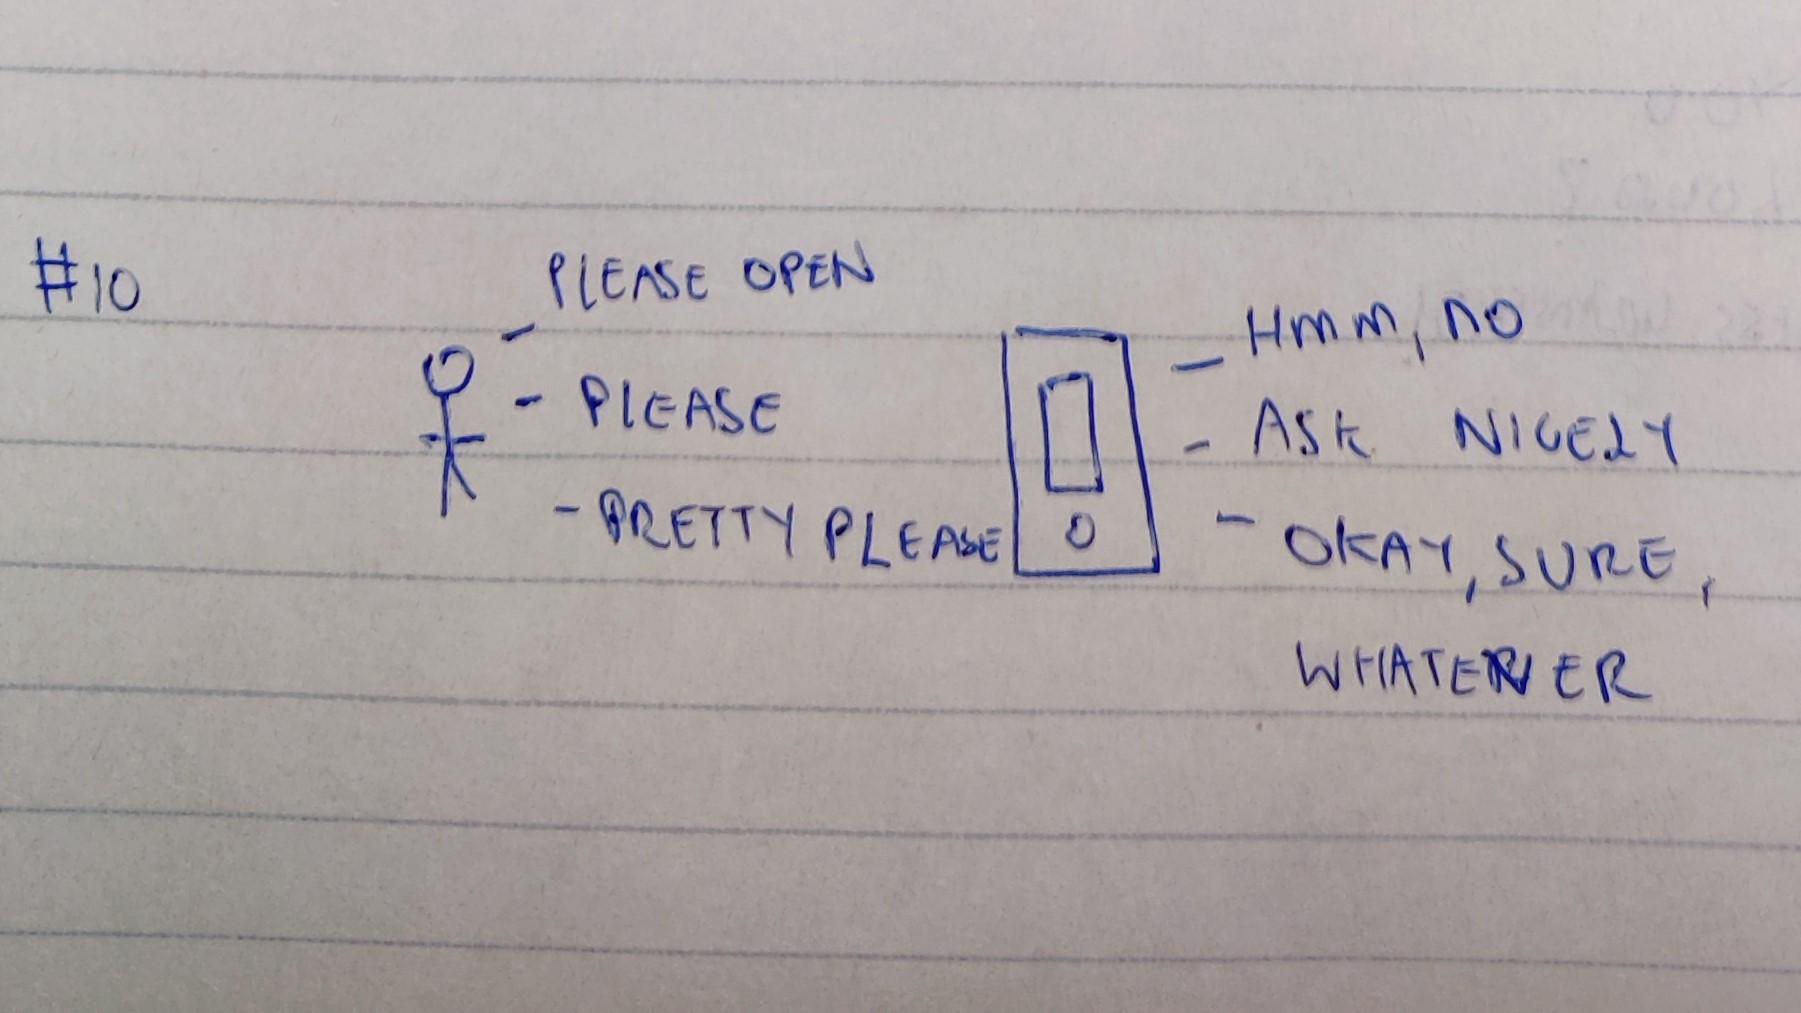 #10
- PLEASE OPEN
- PLEASE
- PRETTY PLEASE
- HMM, NO
- ASK NICELY
- OKAY, SURE,
WHATEVER